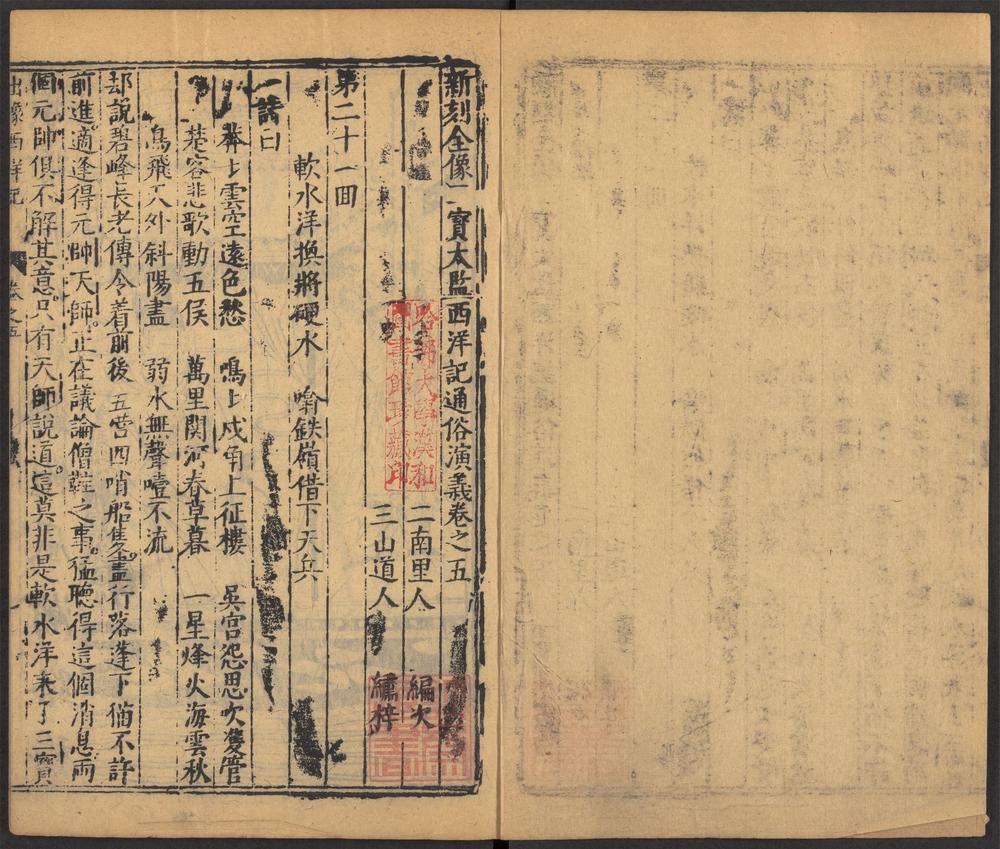 新刻全像三寶太監西洋記通俗演義卷之五
二南里人 編次
三山道人 繡梓
哈佛大學漢和
圖書館珍藏印
第二十一囬
軟水洋換將硬水 喻鉄嶺借下天兵
詩曰
莽〻雲空遠色愁 嗚〻戍角上征樓 吳宮怨思吹雙管
楚客悲歌動五侯 萬里関河春草暮 一星烽火海雲秋
鳥飛天外斜陽盡 弱水無聲噎不流
却說碧峰長老傳令着前後五营四哨船隻盡行落篷下猫不許
前進適逢得元帥天師正在議論僧鞋之事猛聽得這個消息兩
個元帥俱不解其意只有天師說道這莫非是軟水洋來了三寳
出像西洋記 卷之五